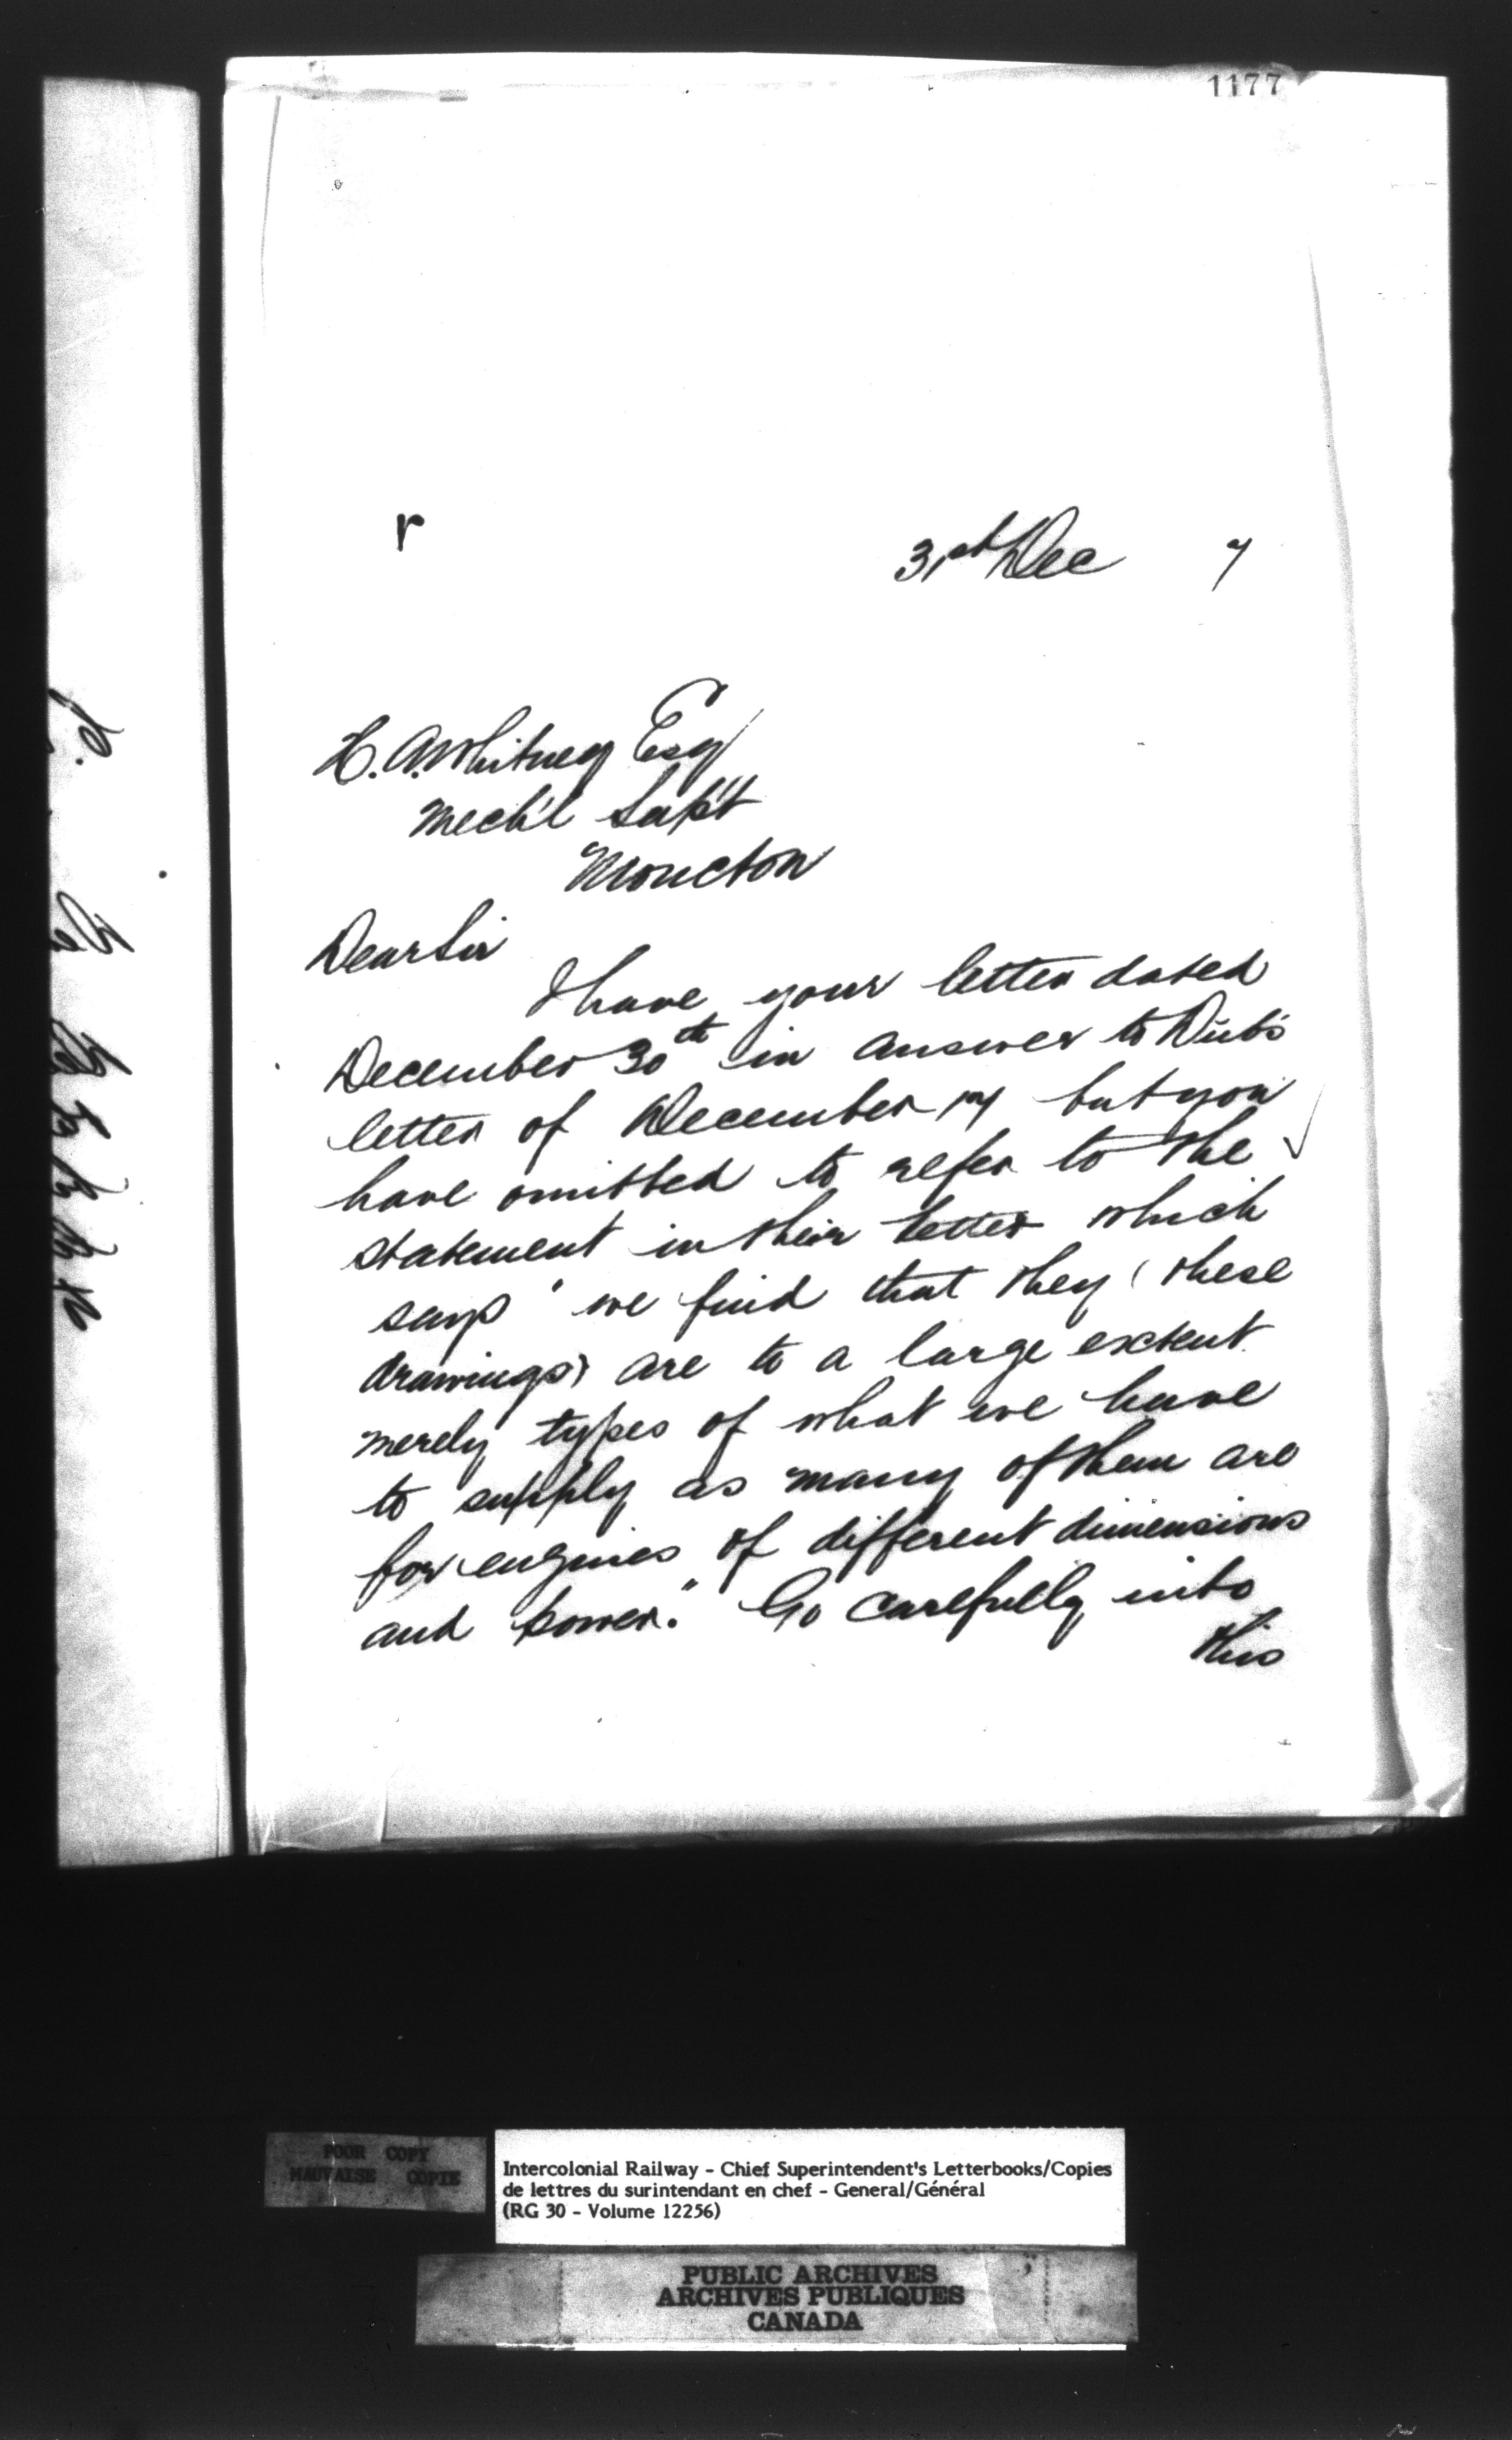 1177
r
31st Dec 7
H. A. Whitney Esq
Mech'l Sup't
Moncton
Dear Sir
I have your letter dated
December 30th in answer to Dübs
letter of December 17 but you
have omitted to refer to the
statement in their letter which
says "we find that they (these
drawings) are to a large extent
merely types of what we have
to supply as many of them are
for engines of different dimensions
and power." Go carefully into
this
POOR COPY
MAUVAISE COPIE
Intercolonial Railway - Chief Superintendent's Letterbooks/Copies
de lettres du surintendant en chef - General/Général
(RG 30 - Volume 12256)
PUBLIC ARCHIVES
ARCHIVES PUBLIQUES
CANADA